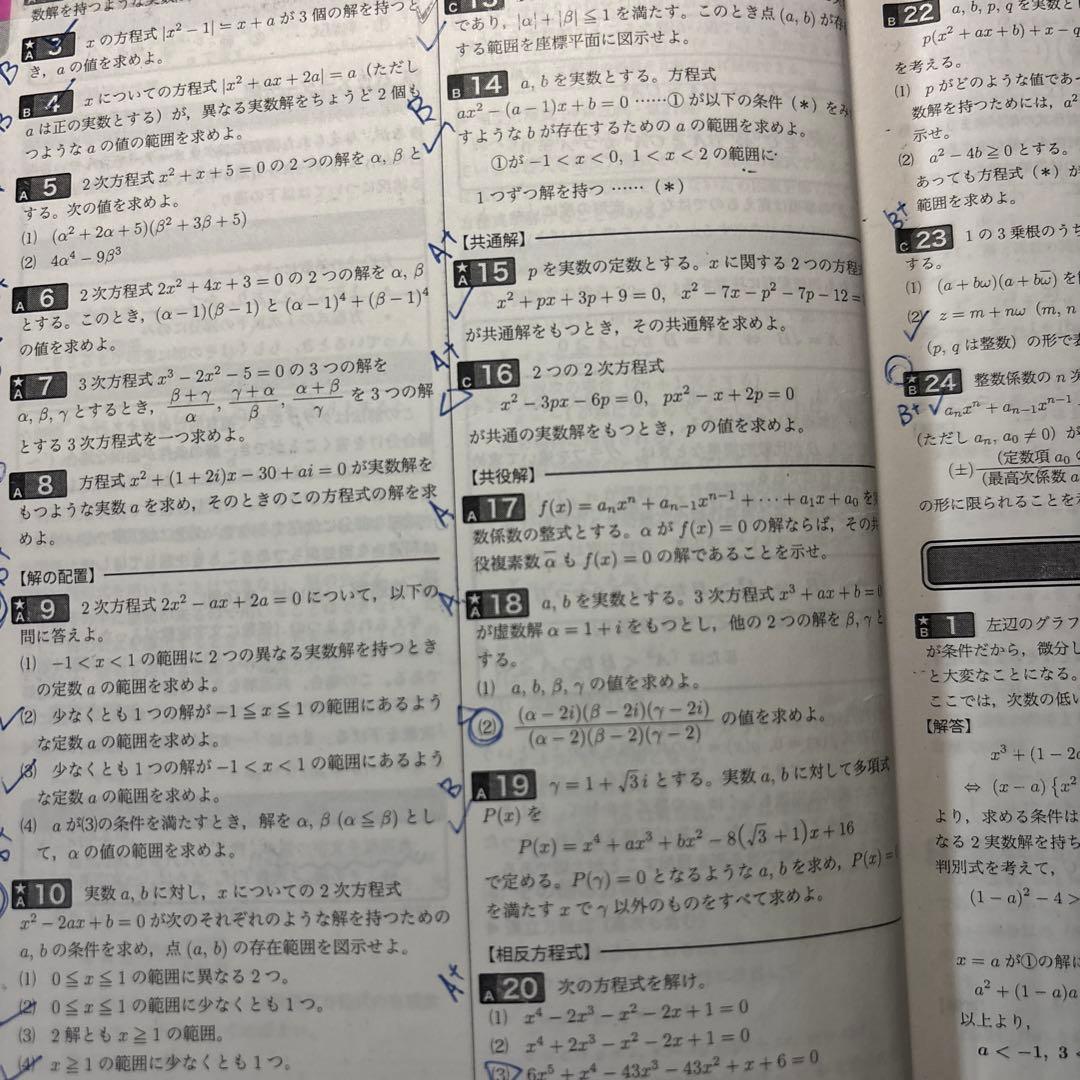 数解を持つような実数
★A 3 xの方程式|x²−1|≒x+aが3個の解を持つと
き，aの値を求めよ。
B 4 xについての方程式|x²+ax+2a|=a（ただし
aは正の実数とする）が，異なる実数解をちょうど2個も
つようなaの値の範囲を求めよ。
A 5 2次方程式x²+x+5=0の2つの解をα, βと
する。次の値を求めよ。
(1) (α²+2α+5)(β²+3β+5)
(2) 4α⁴−9β³
A 6 2次方程式2x²+4x+3=0の2つの解をα, β
とする。このとき，(α−1)(β−1)と(α−1)⁴+(β−1)⁴
の値を求めよ。
★A 7 3次方程式x³−2x²−5=0の3つの解を
α, β, γとするとき，(β+γ)/α, (γ+α)/β, (α+β)/γを3つの解
とする3次方程式を一つ求めよ。
A 8 方程式x²+(1+2i)x−30+ai=0が実数解を
もつような実数aを求め，そのときのこの方程式の解を求
めよ。
【解の配置】
★A 9 2次方程式2x²−ax+2a=0について，以下の
問に答えよ。
(1) −1<x<1の範囲に2つの異なる実数解を持つとき
の定数aの範囲を求めよ。
(2) 少なくとも1つの解が−1≦x≦1の範囲にあるよう
な定数aの範囲を求めよ。
(3) 少なくとも1つの解が−1<x<1の範囲にあるよう
な定数aの範囲を求めよ。
(4) aが(3)の条件を満たすとき，解をα, β (α≦β)とし
て，αの値の範囲を求めよ。
★A 10 実数a, bに対し，xについての2次方程式
x²−2ax+b=0が次のそれぞれのような解を持つための
a, bの条件を求め，点(a, b)の存在範囲を図示せよ。
(1) 0≦x≦1の範囲に異なる2つ。
(2) 0≦x≦1の範囲に少なくとも1つ。
(3) 2解ともx≧1の範囲。
(4) x≧1の範囲に少なくとも1つ。
C 13
であり，|α|+|β|≦1を満たす。このとき点(a, b)が存
する範囲を座標平面に図示せよ。
B 14 a, bを実数とする。方程式
ax²−(a−1)x+b=0 ……①が以下の条件（*）をみ
すようなbが存在するためのaの範囲を求めよ。
①が−1<x<0, 1<x<2の範囲に
1つずつ解を持つ ……（*）
【共通解】
★A 15 pを実数の定数とする。xに関する2つの方程
x²+px+3p+9=0, x²−7x−p²−7p−12=
が共通解をもつとき，その共通解を求めよ。
C 16 2つの2次方程式
x²−3px−6p=0, px²−x+2p=0
が共通の実数解をもつとき，pの値を求めよ。
【共役解】
A 17 f(x)=aₙxⁿ+aₙ₋₁xⁿ⁻¹+⋯+a₁x+a₀を
数係数の整式とする。αがf(x)=0の解ならば，その共
役複素数α̅もf(x)=0の解であることを示せ。
★A 18 a, bを実数とする。3次方程式x³+ax+b=0
が虚数解α=1+iをもつとし，他の2つの解をβ, γと
する。
(1) a, b, β, γの値を求めよ。
(2) (α−2i)(β−2i)(γ−2i)/(α−2)(β−2)(γ−2)の値を求めよ。
A 19 γ=1+√3iとする。実数a, bに対して多項式
P(x)を
P(x)=x⁴+ax³+bx²−8(√3+1)x+16
で定める。P(γ)=0となるようなa, bを求め，P(x)=
を満たすxでγ以外のものをすべて求めよ。
【相反方程式】
A 20 次の方程式を解け。
(1) x⁴−2x³−x²−2x+1=0
(2) x⁴+2x³−x²−2x+1=0
(3) 6x⁵+x⁴−43x³−43x²+x+6=0
B 22 a, b, p, qを実数と
p(x²+ax+b)+x−q
を考える。
(1) pがどのような値であっ
数解を持つためには，a²
示せ。
(2) a²−4b≧0とする。
あっても方程式（*）が
範囲を求めよ。
C 23 1の3乗根のうち
する。
(1) (a+bω)(a+bω̅)を
(2) z=m+nω (m, n
(p, qは整数）の形で表
★B 24 整数係数のn次
aₙxⁿ+aₙ₋₁xⁿ⁻¹
（ただしaₙ, a₀≠0）が
(±)(定数項a₀の/(最高次係数a
の形に限られることを示
★B 1 左辺のグラフ
が条件だから，微分し
と大変なことになる。
ここでは，次数の低い
【解答】
x³+(1−2a
⇔ (x−a){x²
より，求める条件は
なる2実数解を持ち
判別式を考えて，
(1−a)²−4>
x=aが①の解に
a²+(1−a)a
以上より，
a<−1, 3<
B
B
B
A+
A+
A
A
B
A+
B+
B+